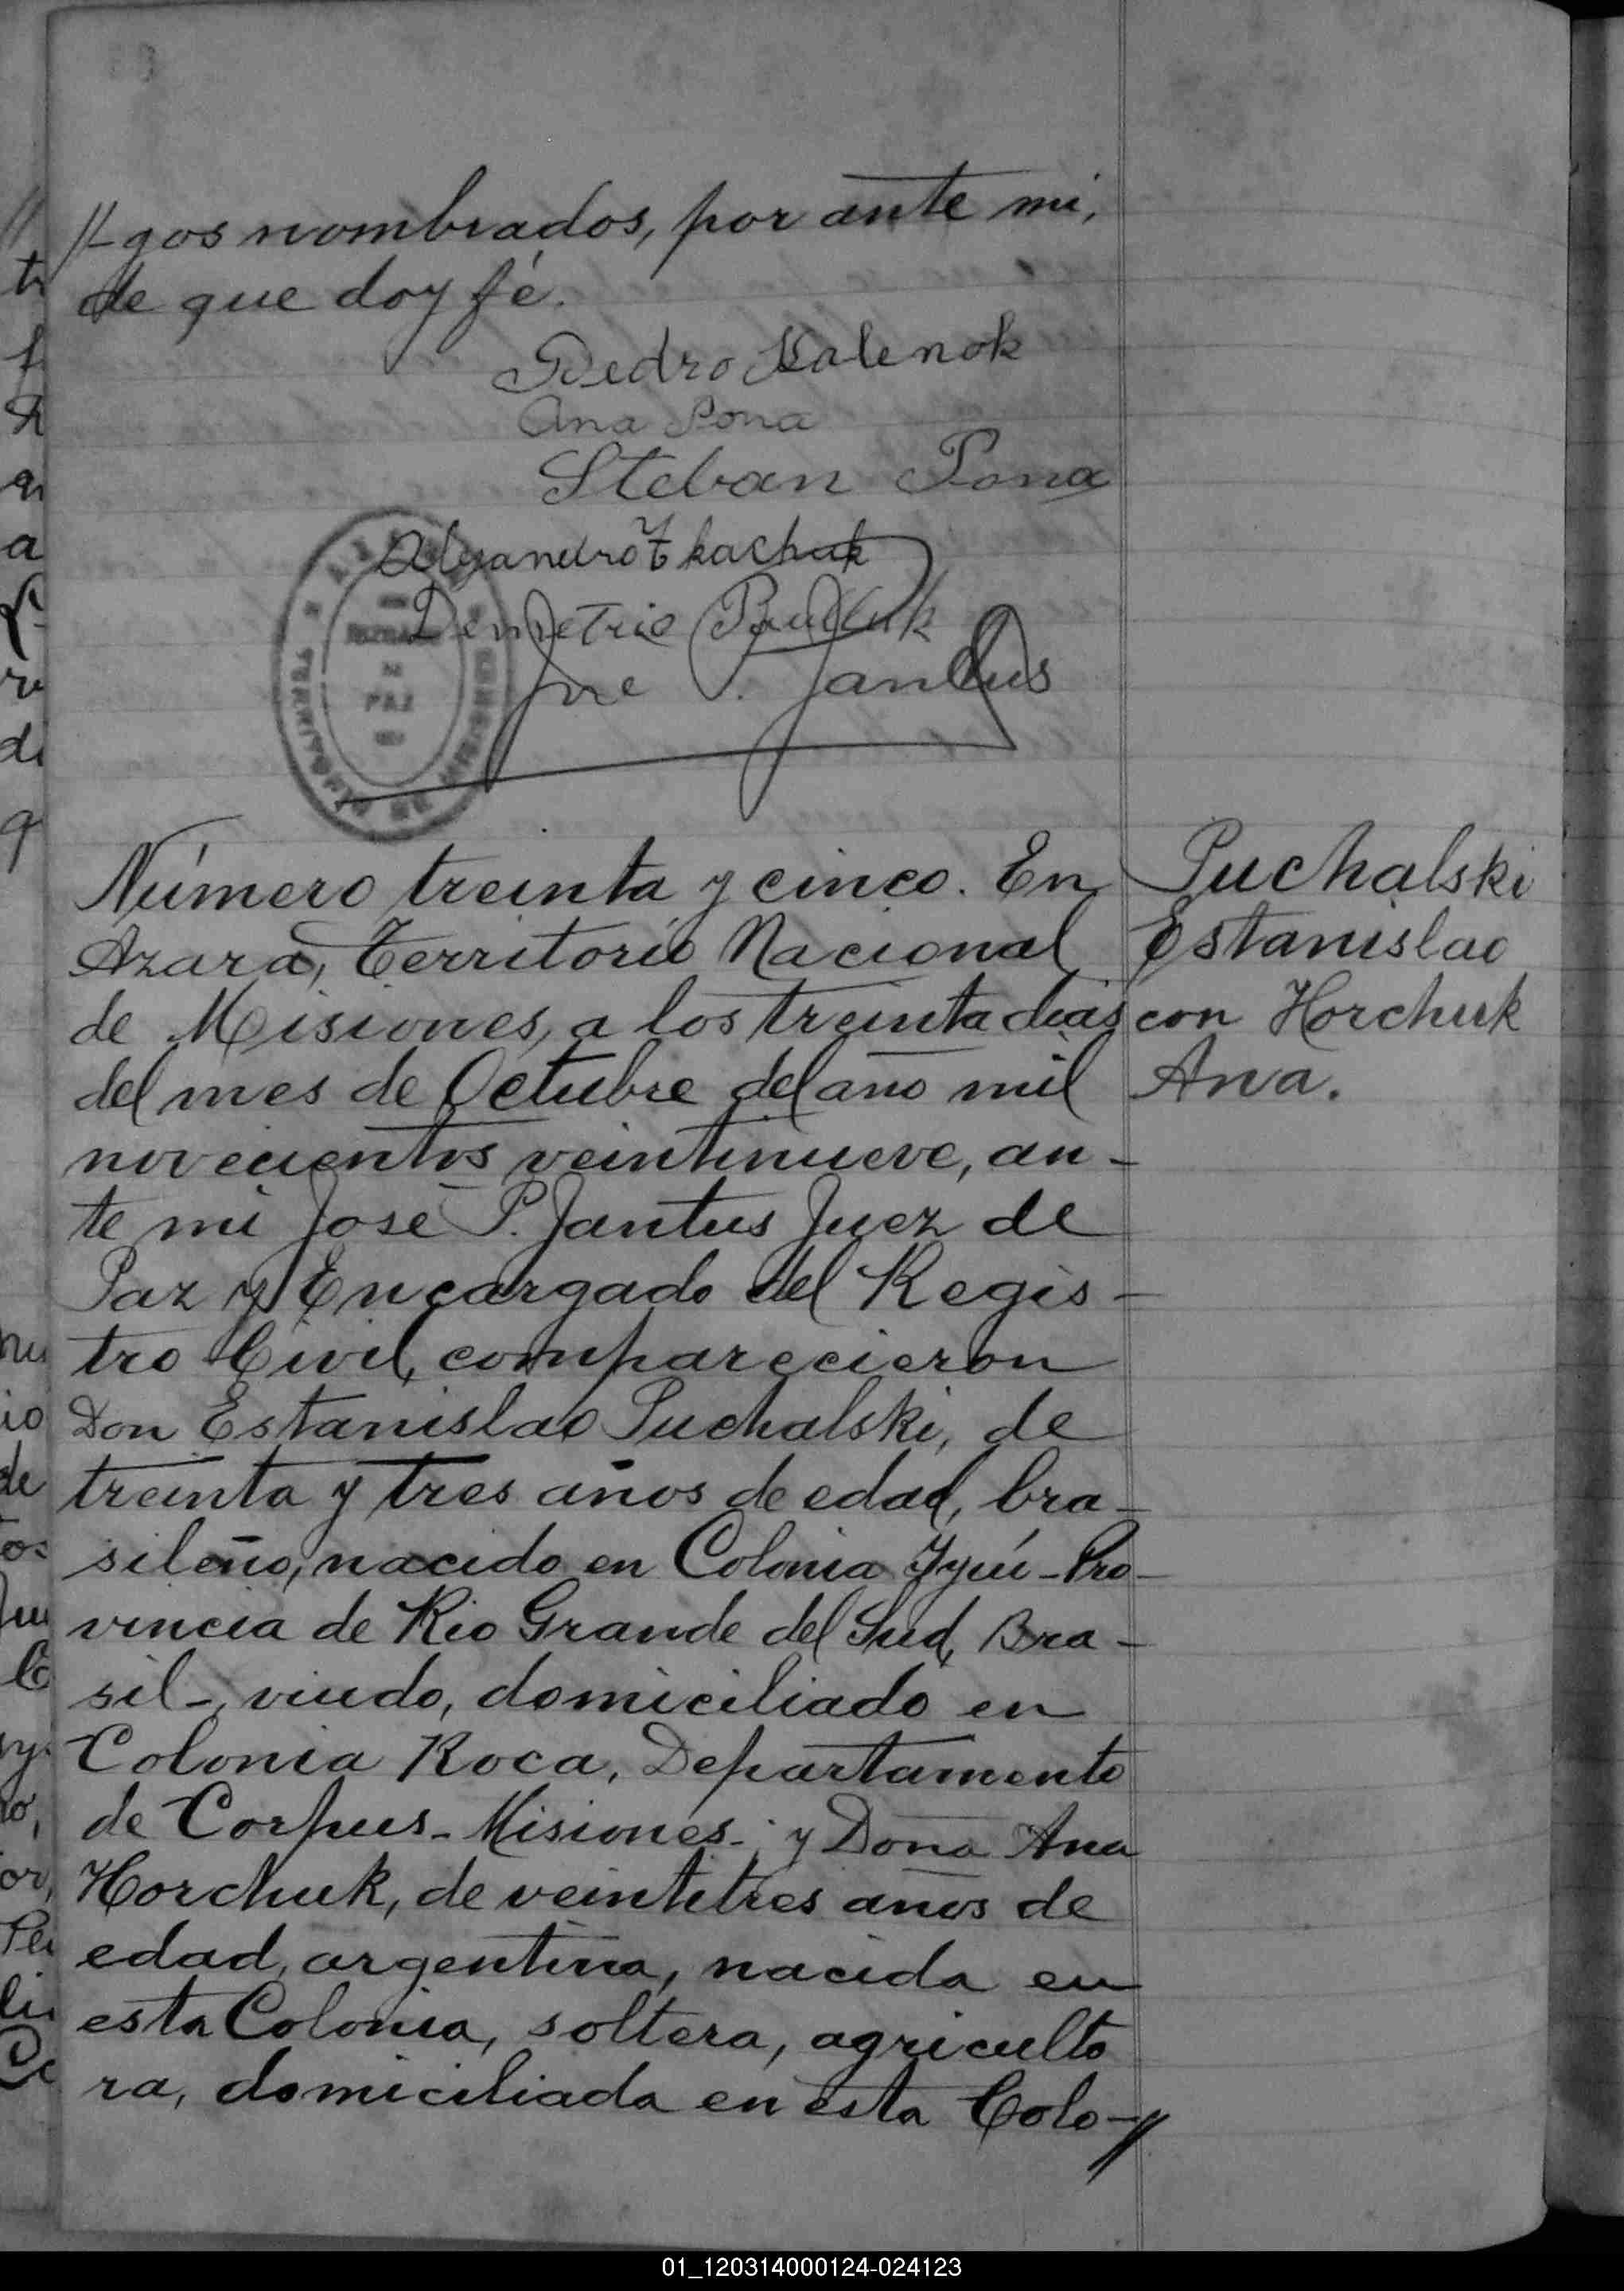 //-gos nombrados, por ante mi,
de que doy fé.
Pedro Kalenok
Ana Pona
Steban Pona
Alejandro Tkachuk
Demetrio
José P. Jantus
PAZ
Número treinta y cinco. En
Azara, Territorio Nacional
de Misiones, a los treinta dias
del mes de Octubre del año mil
novecientos veintinueve, an-
te mi José P. Jantus Juez de
Paz y Encargado del Regis-
tro Civil, comparecieron
Don Estanislao Puchalski, de
treinta y tres años de edad, bra-
sileño, nacido en Colonia Yyuí-Pro-
vincia de Rio Grande del Sud, Bra-
sil-, viudo, domiciliado en
Colonia Roca, Departamento
de Corpus-Misiones-; y Doña Ana
Horchuk, de veintitres años de
edad, argentina, nacida en
esta Colonia, soltera, agriculto
ra, domiciliada en esta Colo-//
Puchalski
Estanislao
con Horchuk
Ana.
01_120314000124-024123